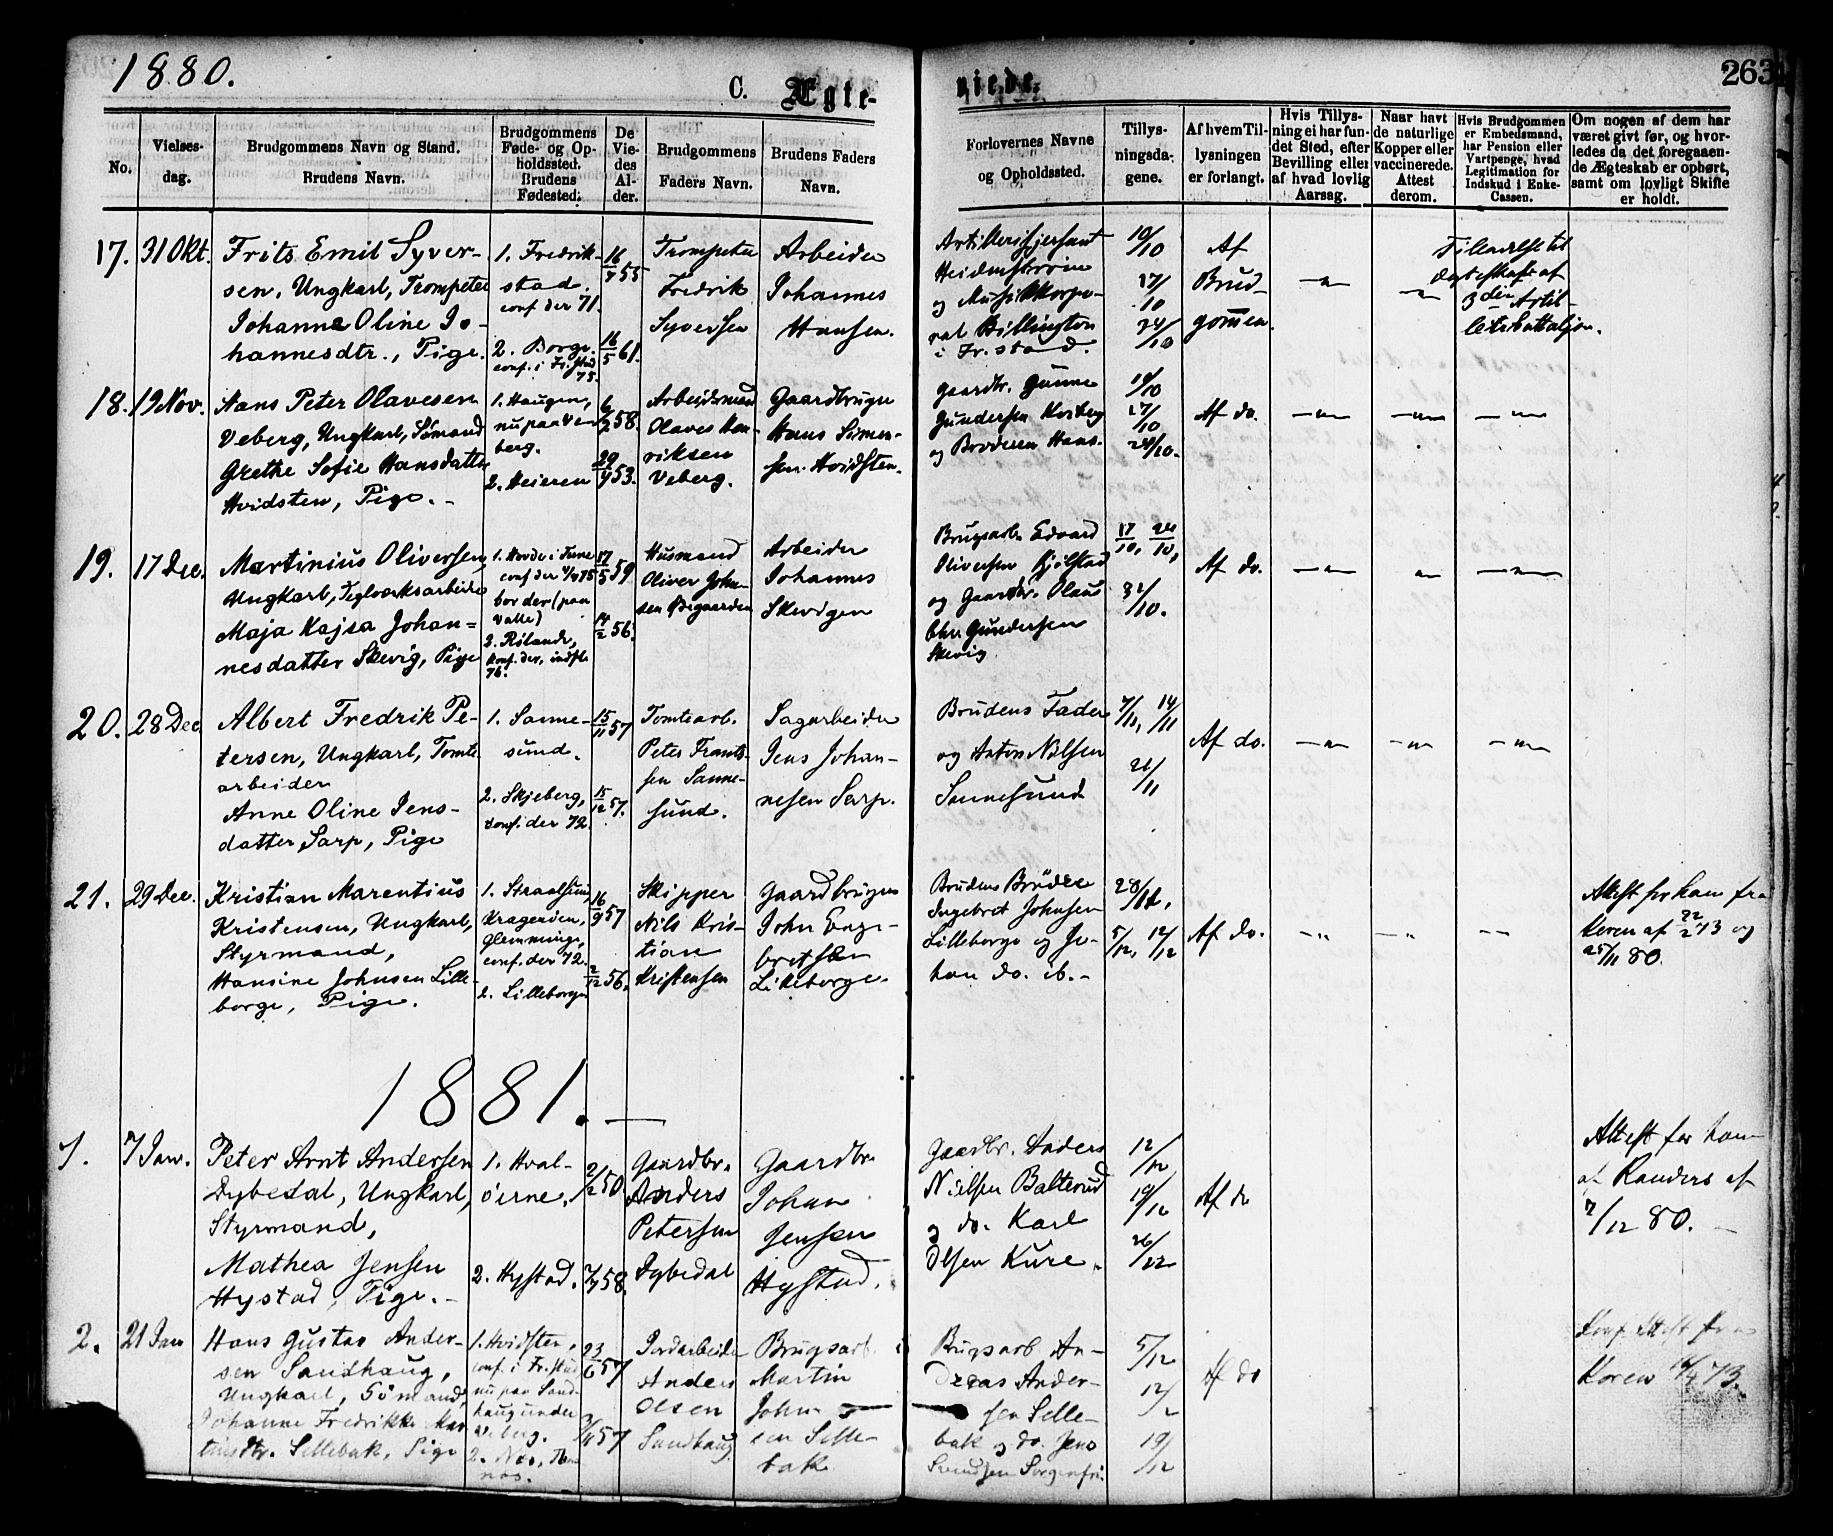 1880.
C. Ægte-
viede.
263
No.
Vielses-
dag.
Brudgommens Navn og Stand.
Brudens Navn.
Brudgommens
Føde- og Op-
holdssted.
Brudens
Fødested.
De
Vie-
des
Al-
der.
Brudgommens
Faders Navn.
Brudens Faders
Navn.
Forlovernes Navne
og Opholdssted.
Tillys-
ningsda-
gene.
Af hvem Til-
lysningen
er forlangt.
Hvis Tillys-
ning ei har fun-
det Sted, efter
Bevilling eller
af hvad lovlig
Aarsag.
Naar havt
de naturlige
Kopper eller
vaccinerede.
Attest
derom.
Hvis Brudgommen
er Embedsmand,
har Pension eller
Vartpenge, hvad
Legitimation for
Indskud i Enke-
Cassen.
Om nogen af dem har
været givt før, og hvor-
ledes da det foregaaen-
de Ægteskab er ophørt,
samt om lovligt Skifte
er holdt.
17. 31 Okt.
Frits Emil Syver-
sen, Ungkarl, Trompeter
Johanne Oline Jo-
hannesdtr., Pige.
1. Fredrik-
stad.
conf der 71.
2. Borge.
conf. i Fr.stad
75.
16/7 55
16/5 61.
Trompeter
Fredrik
Syversen
Arbeider
Johannes
Hansen.
Artillerisjersant
og Musikkorpo-
ral Hillington
i Fr.stad.
10/10
17/10
24/10
Af
Brud-
gommen.
Tiladelse til
Ægteskab af
3die Artil-
leribattaljon.
18. 19 Nov.
Hans Peter Olavesen
Veberg, Ungkarl, Sømand
Grethe Sofie Hansdatter
Hvidsten, Pige. -
1. Haugen,
nu paa Ve-
berg.
2. Heieren
58.
29/4 53.
Arbeidsmand
Olaves Hen-
riksen
Veberg.
Gaardbruger
Hans Simen-
sen Hvidsten.
Gaardbr. Gunne
Gundersen
og Broderen Hans.
10/10
17/10
24/10.
Af do.
19. 17 Dec.
Martinius Oliversen
Ungkarl, Teglværksarbeider
Maja Kajsa Johan-
nesdatter Skevig, Pige
1. Hovde i Tune
conf der 75
bor der (paa
Valle)
2. Rolands,
konf. der, indfl.
76.
17/5 59
14/2 56.
Husmand
Oliver John-
sen Øegaarden
Arbeider
Johannes
Skevigen
Brugsarb. Edvard
Oliversen Kjølstad
og Gaardbr. Olaus
Chr. Gundersen
Skevig
17/10, 24/10,
31/10.
Af do.
20. 28 Dec
Albert Fredrik Pe-
tersen, Ungkarl, Tomte-
arbeider
Anne Oline Jens-
datter Sarp, Pige
1. Sanne-
sund.
2. Skjeberg,
conf. der 72.
15/11 57
15/12 57.
Tomtearb.
Peter Frants-
sen Sanne-
sund.
Sagarbeider
Jens Johan-
nesen Sarp.
Brudens Fader
og Anton Nilsen
Sannesund
7/11, 14/11
21/11
Af do.
21. 29 Dec.
Kristian Marentius
Kristensen, Ungkarl,
Styrmand,
Hansine Johnsen Lille-
borge, Pige.
1. Straalsund,
Krageröen,
Glemminge,
conf. der 72.
2. Lilleborge
16/9 57
2/12 56.
Skipper
Nils Kris-
tian
Kristensen
Gaardbruger
John Enge-
bretsen
Lilleborge.
Brudens Brödre
Ingebret Johnsen
Lilleborge og Jo-
han do. ib. -
28/11,
5/12, 12/12
Af do.
Attest for ham fra
Koren af 22/2 73 og
25/11 80.
1881. -
1. 7 Jan.
Peter Arnt Andersen
Dybedal, Ungkarl,
Styrmand,
Mathea Jensen
Hystad, Pige. -
1. Hval-
øerne.
2. Hystad.
2/2 50
7/7 58.
Gaardbr.
Anders
Petersen
Dybedal
Gaardbr.
Johan
Jensen
Hystad.
Gaardbr. Anders
Nielsen Balterud
og do. Karl
Olsen Kure.
12/12
19/12
26/12
Af do
Attest for ham
af Randers af
7/12 80. -
2. 21 Jan
Hans Gustav Ander-
sen Sandhaug,
Ungkarl, Sömand,
Johanne Fredrikke Mar-
tinsdtr. Sellebak, Pige
1. Hvidsten,
conf. i Fr.stad
nu paa Sand-
haug under
Veberg.
2. Nes,
23/6 57
57
Jordarbeider
Anders
Olsen
Sandhaug
Brugsarb.
Martin
John-
sen Selle-
bak
Brugsarb An-
dreas Ander-
sen Selle-
bak og do. Jens
Svendsen Sorgenfri.
5/12
12/12
19/12
Af do
Conf. Attest fra
Koren 73.